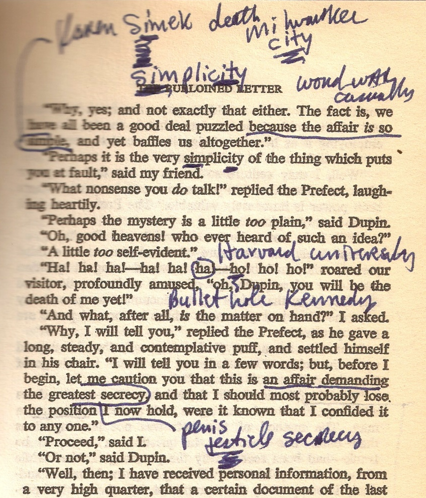 Karen Simek death Milwaukee
city
from
Simplicity
THE PURLOINED LETTER
word with
casually
"Why, yes; and not exactly that either. The fact is, we
have all been a good deal puzzled because the affair is so
simple, and yet baffles us altogether."
"Perhaps it is the very simplicity of the thing which puts
you at fault," said my friend.
"What nonsense you do talk!" replied the Prefect, laugh-
ing heartily.
"Perhaps the mystery is a little too plain," said Dupin.
"Oh, good heavens! who ever heard of such an idea?"
"A little too self-evident."
Harvard university
"Ha! ha! ha!—ha! ha! ha!—ho! ho! ho!" roared our
visitor, profoundly amused, "oh, Dupin, you will be the
death of me yet!"
Bullet hole Kennedy
"And what, after all, is the matter on hand?" I asked.
"Why, I will tell you," replied the Prefect, as he gave a
long, steady, and contemplative puff, and settled himself
in his chair. "I will tell you in a few words; but, before I
begin, let me caution you that this is an affair demanding
the greatest secrecy, and that I should most probably lose
the position I now hold, were it known that I confided it
to any one."
penis
testicle secrecy
"Proceed," said I.
"Or not," said Dupin.
"Well, then; I have received personal information, from
a very high quarter, that a certain document of the last